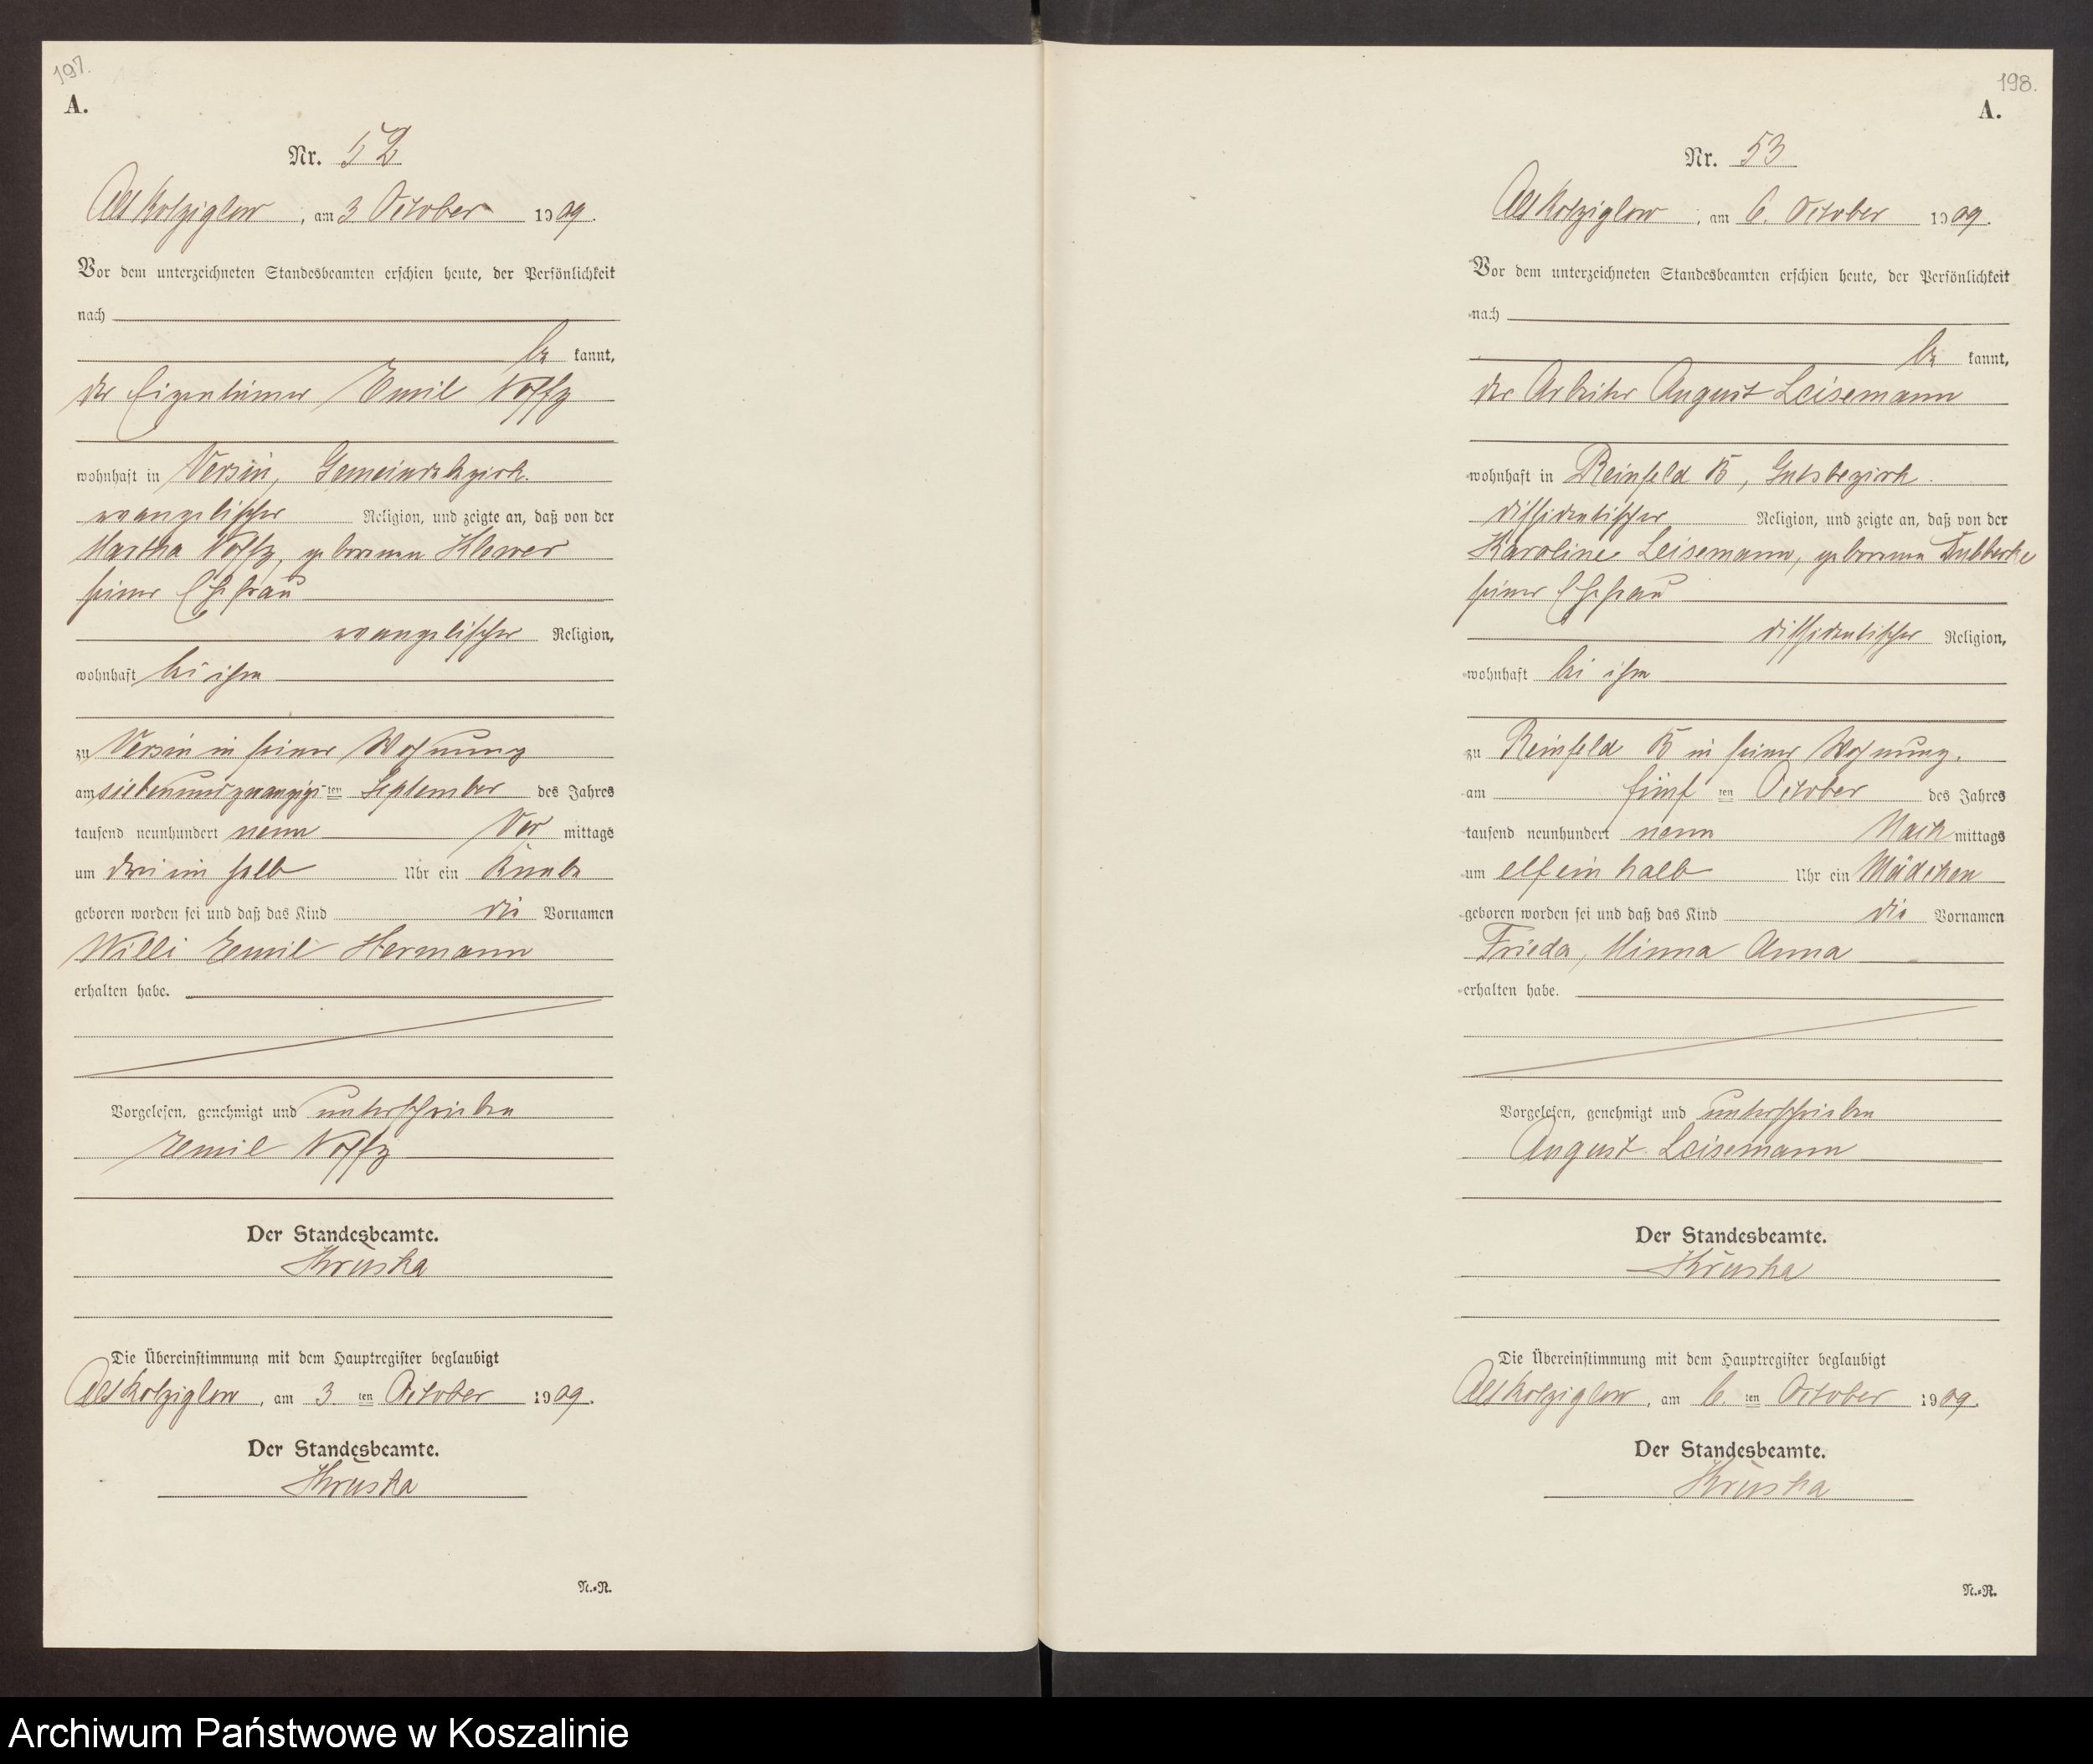 197.
A.
Nr. 52
Alt Kolziglow, am 3 October 1909.
Vor dem unterzeichneten Standesbeamten erschien heute, der Persönlichkeit
nach
be kannt,
der Eigentümer Emil Noffz
wohnhaft in Versin, Gemeindebezirk.
evangelischer Religion, und zeigte an, daß von der
Martha Noffz, geborenen Klawer
seiner Ehefrau
evangelischer Religion,
wohnhaft bei ihm
zu Versin in seiner Wohnung
am siebenundzwanzigsten September des Jahres
tausend neunhundert neun Vor mittags
um drei ein halb Uhr ein Knabe
geboren worden sei und daß das Kind die Vornamen
Willi Emil Hermann
erhalten habe.
Vorgelesen, genehmigt und unterschrieben
Emil Noffz
Der Standesbeamte.
Kruska
Die Übereinstimmung mit dem Hauptregister beglaubigt
Alt Kolziglow, am 3. ten October 1909.
Der Standesbeamte.
Kruska
N.=R.
198.
A.
Nr. 53
Alt Kolziglow, am 6. October 1909.
Vor dem unterzeichneten Standesbeamten erschien heute, der Persönlichkeit
nach
be kannt,
der Arbeiter August Leisemann
wohnhaft in Reinfeld B, Gutsbezirk.
dissidentischer Religion, und zeigte an, daß von der
Karoline Leisemann, geborenen Dubberke
seiner Ehefrau
dissidentischer Religion,
wohnhaft bei ihm
zu Reinfeld B in seiner Wohnung.
am fünf ten October des Jahres
tausend neunhundert neun Nach mittags
um elf ein halb Uhr ein Mädchen
geboren worden sei und daß das Kind die Vornamen
Frieda, Minna Anna
erhalten habe.
Vorgelesen, genehmigt und unterschrieben
August Leisemann
Der Standesbeamte.
Kruska
Die Übereinstimmung mit dem Hauptregister beglaubigt
Alt Kolziglow, am 6. ten October 1909.
Der Standesbeamte.
Kruska
N.=R.
Archiwum Państwowe w Koszalinie